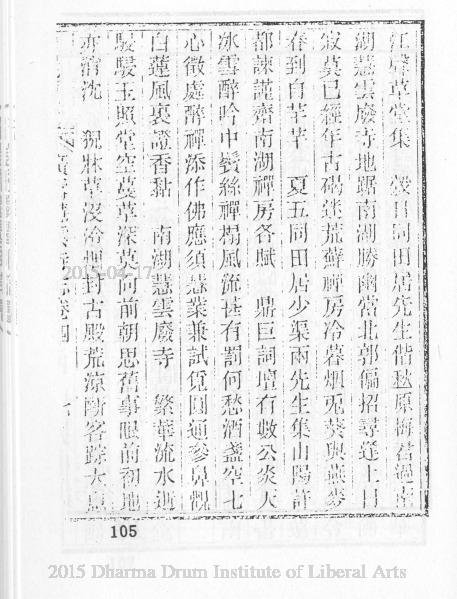 江聲草堂集　穀日同田居先生偕秋原梅査過南
湖慧雲廢寺地踞南湖勝幽當北郭偏招尋逢上日
寂莫已經年古碣迷荒蘚禪房冷暮烟兎葵與燕麥
春到自芊芊　夏五同田居少渠兩先生集山陽許
都諫謹齋南湖禪房各賦　鼎巨詞壇有數公炎天
冰雪醉吟中鬢絲禪榻風流甚有罰何愁酒盞空七
心徵處醉禪添作佛應須慧業兼試覓圓通參鼻觀
白蓮風裏證香黏　南湖慧雲廢寺　繁華流水逝
駸駸玉照堂空蔓草深莫向前朝思舊事眼前初地
亦消沈　猊牀草沒冷烟封古殿荒涼斷客踪大息
卷四
105
2015-04-17
2015 Dharma Drum Institute of Liberal Arts